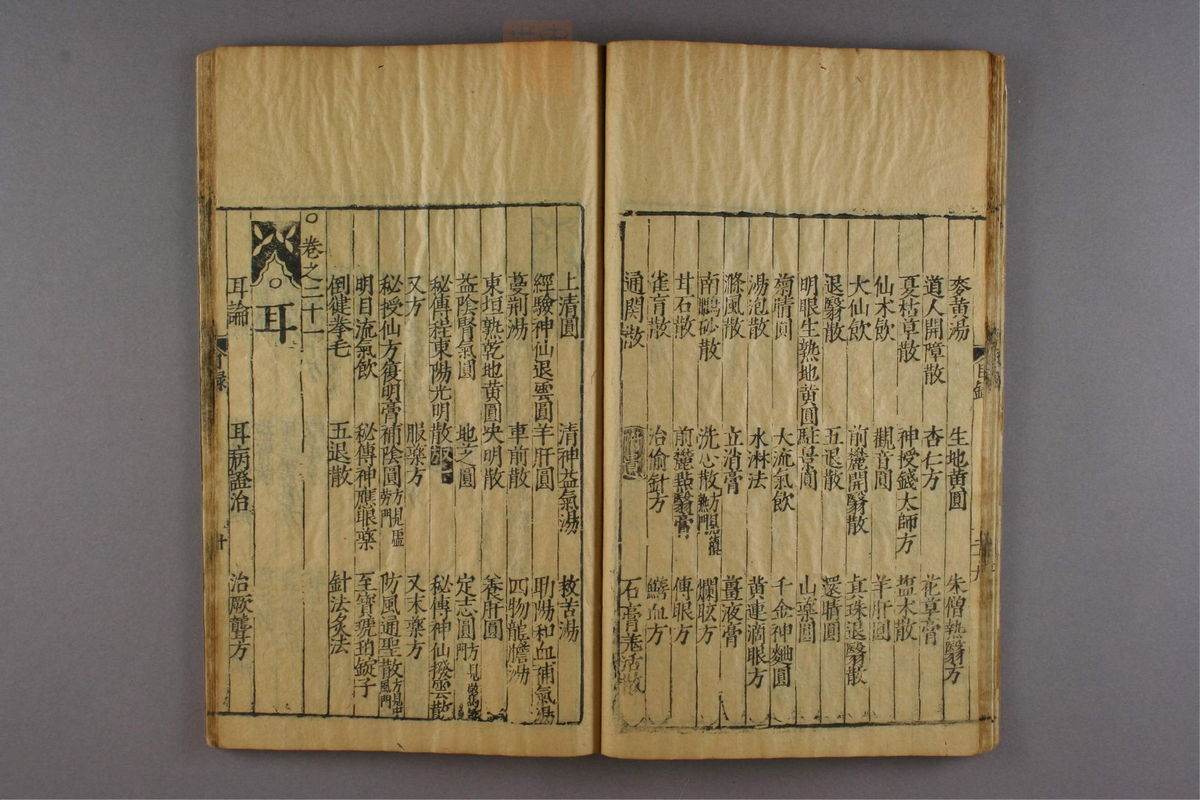 麥黃湯 生地黃圓 朱僧熟翳方
道人開障散 杏仁方 花草膏
夏枯草散 神授錢太師方 鹽术散
仙术飲 觀音圓 羊肝圓
大仙飲 前麓開翳散 真珠退翳散
退翳散 五退散 還睛圓
明眼生熟地黃圓 駐景圓 山藥圓
菊睛圓 大流氣飲 千金神麯圓
湯泡散 水淋法 黃連滴眼方
滌風散 立消膏 薑液膏
南鵬砂散 洗心散 方見積熱門 爛眩方
甘石散 前麓㸃翳膏 傳眼方
雀盲散 治偷針方 鱔血方
通関散 石膏羌活散
目錄
上清圓 清神益氣湯 救苦湯
經驗神仙退雲圓 羊肝圓 助陽和血補氣湯
蔓荊湯 車前散 四物龍膽湯
東垣熟乾地黃圓 决明散 養肝圓
益陰腎氣圓 地芝圓 定志圓
秘傳程東陽光明散 秘傳神仙撥雲散
又方 服藥方 又末藥方
秘授仙方復明膏 補陰圓 方見虛勞門 防風通聖散 方見中風門
明目流氣飲 秘傳神應眼藥 至寶琥珀錠子
倒徤拳毛 五退散 針法灸法
○卷之二十一
耳
耳論 耳病證治 治厥聾方
目錄